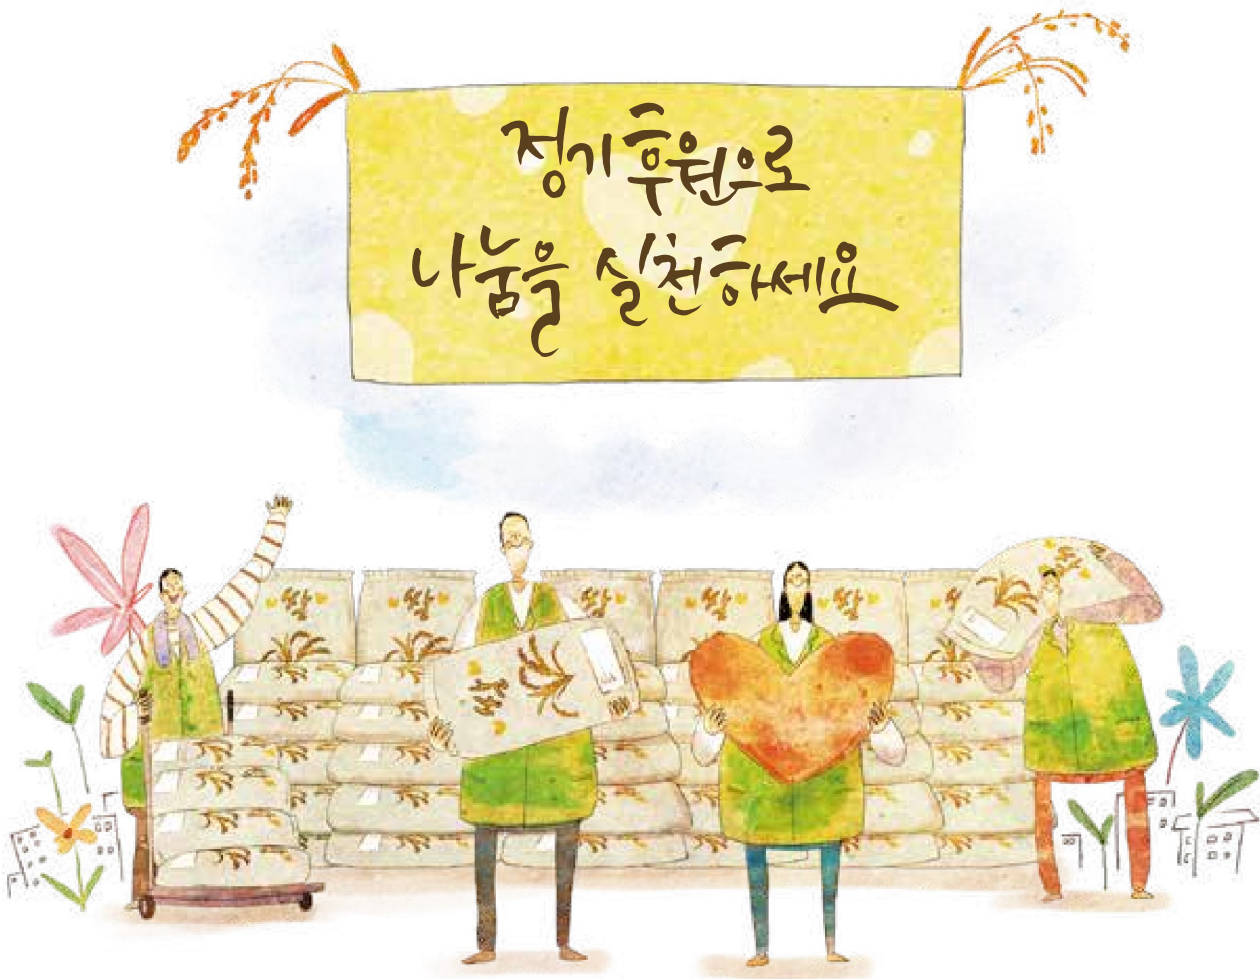 정기후원으로
나눔을 실천하세요
쌀
쌀
쌀
쌀
쌀
쌀
쌀
쌀